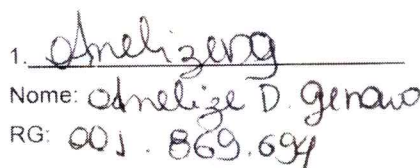 1. Anelizeng
Nome: Anelize D. Genaro
RG: 001.869.694